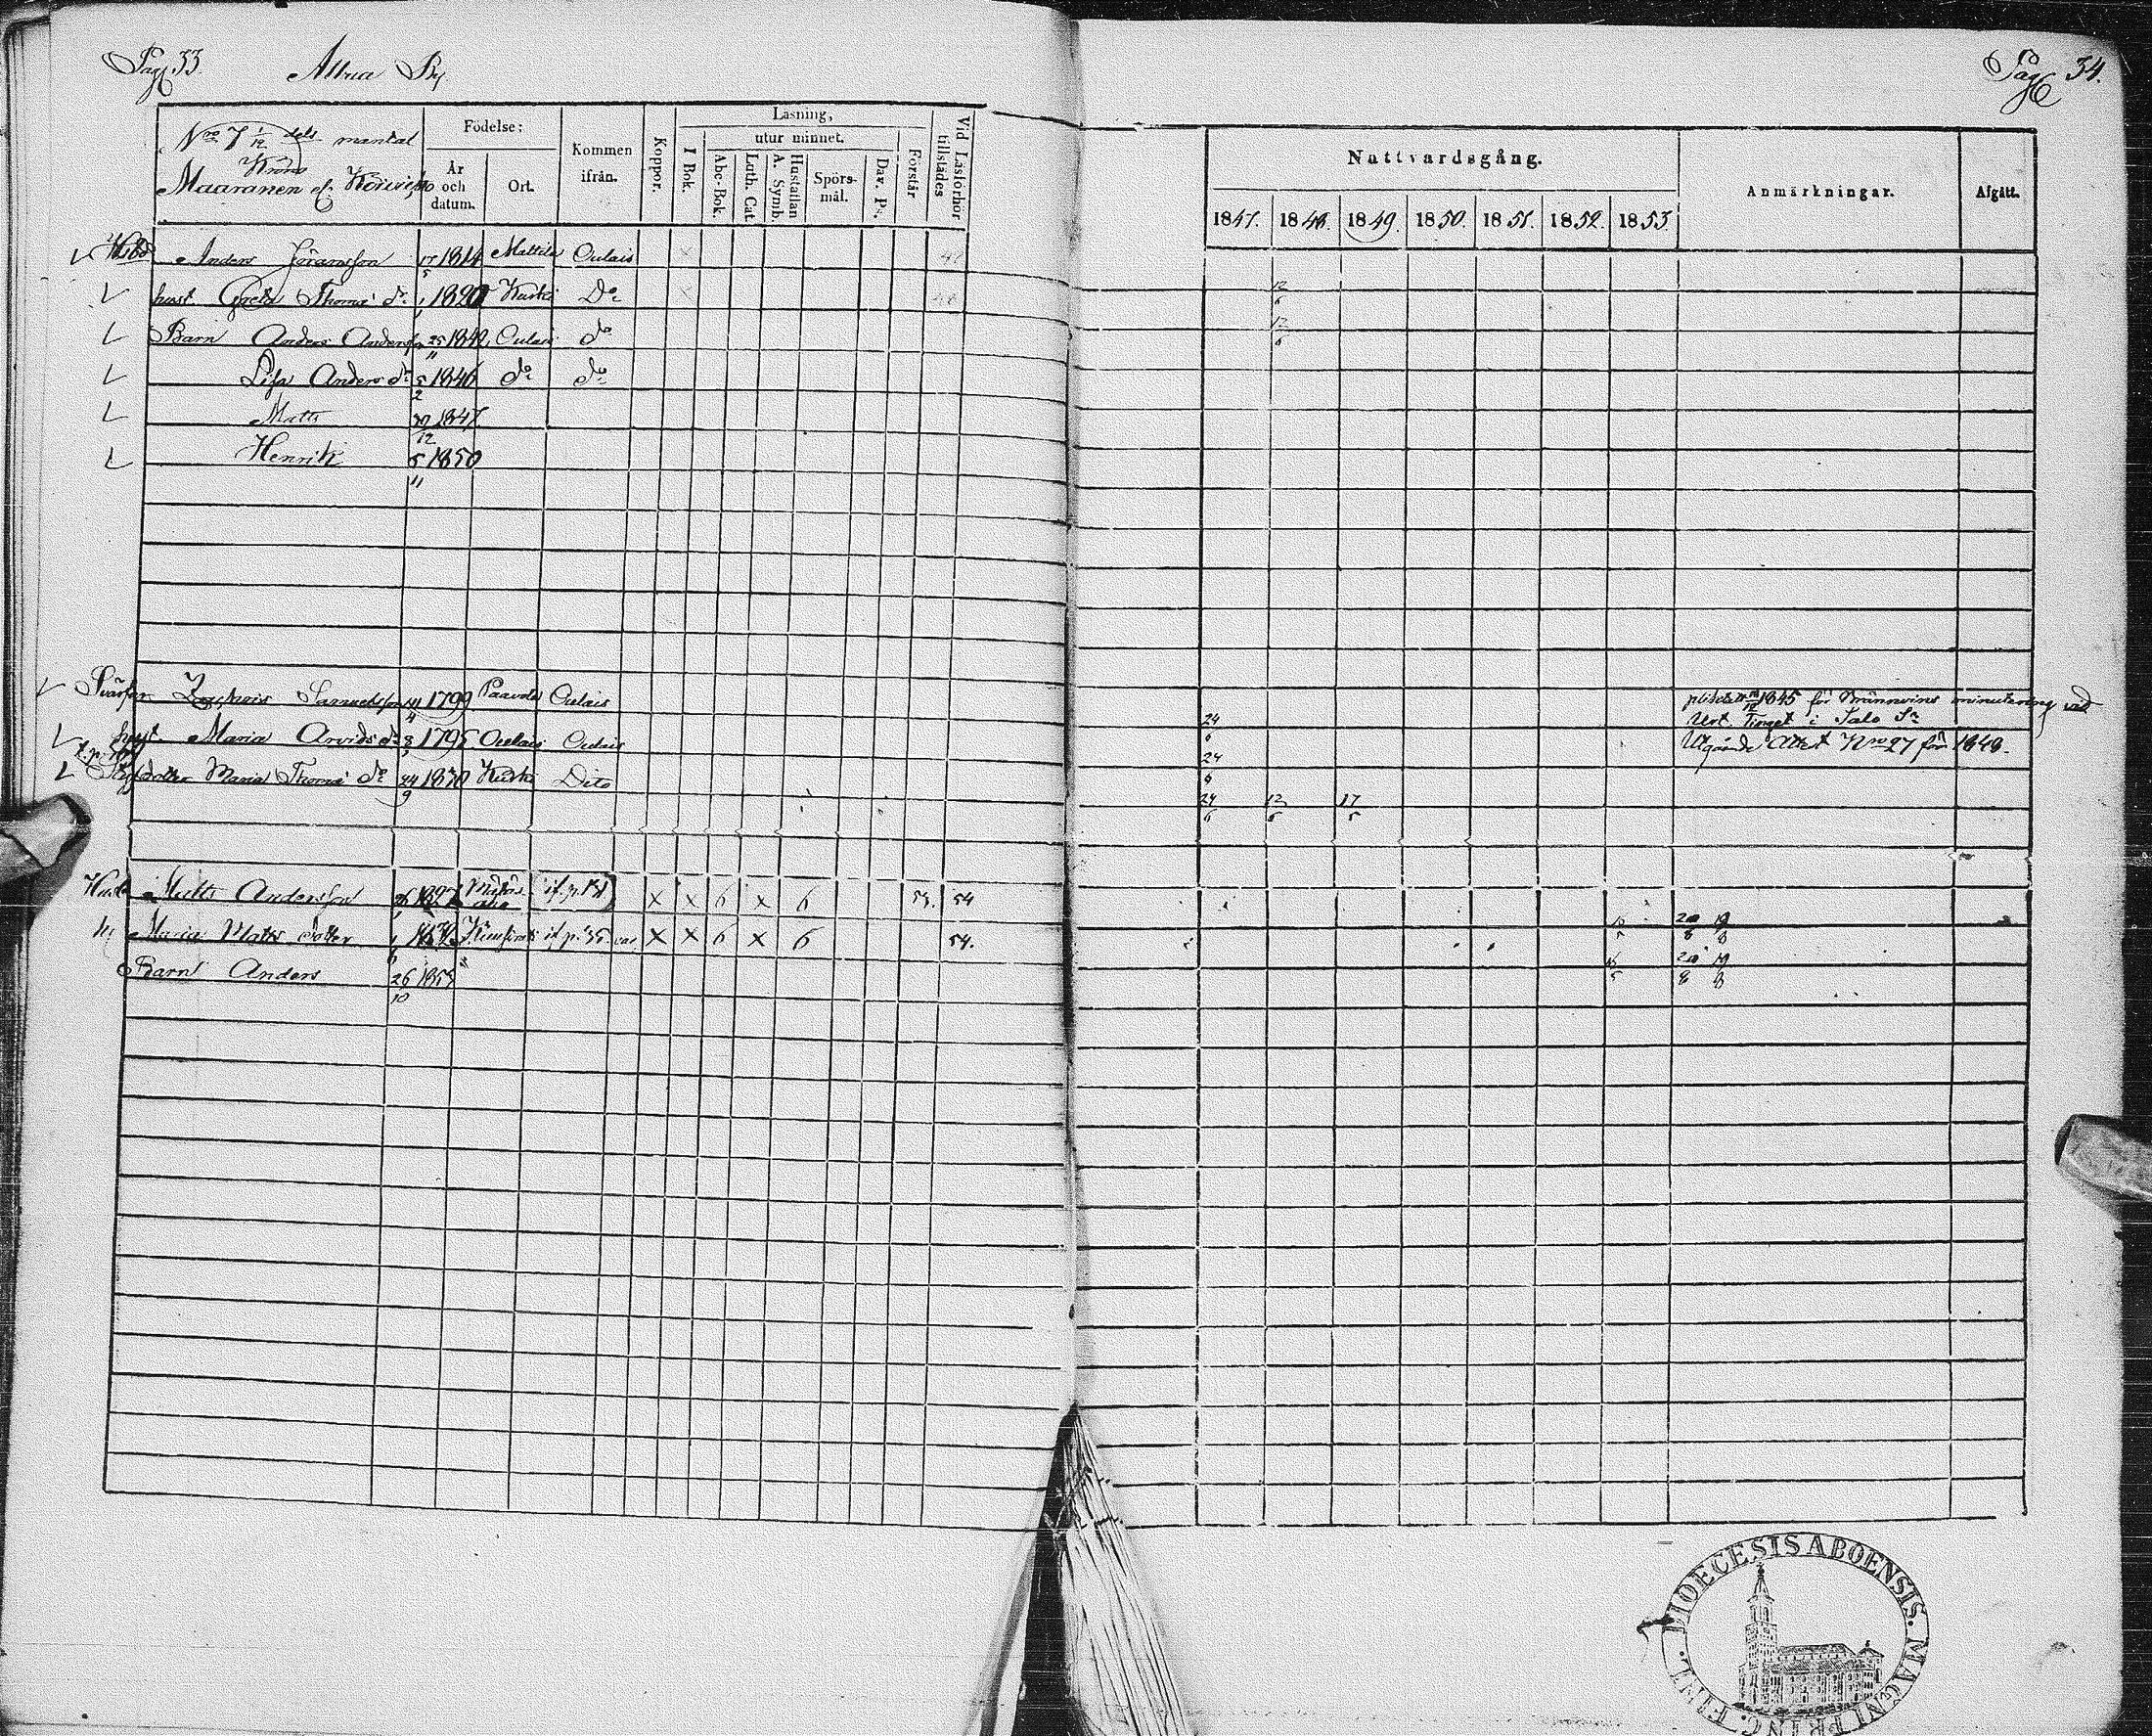 Pag 33. Attua By.
Pag 34.
Nro 7 1/12 dels mantal
Krono
Maaranen el.
Födelse:
År och datum.
Ort.
Kommen ifrån.
Koppor.
Läsning,
I Bok.
utur minnet.
Abc-Bok.
Luth. Cat.
A. Symb.
Hustaflan
Spörsmål.
Dav. Ps.
Förstår
Vid Läsförhör tillstädes
Nattvardsgång.
1847. 1848. 1849. 1850. 1851. 1852. 1853.
Anmärkningar.
Afgått.
Anders Göransson 17/5 1814 Mattila Oulais
hust. Greta Thomæ dr. 1820 Kuski Do 12/6
Barn Anders Andersson 25/11 1842 Oulais do 12/6
Lisa Anders dr 5/2 1846 do do
Matts 30/12 1847
Henrik 5/11 1850
Svärfar Zachris Samuelsson 1799 Paavola Oulais 24/6 1845 för Brännvins minutering vid
Urt. Tinget i Salo Sn
hust. Maria Arvids dr 1795 Oulais Oulais 24/6 Utgående Attest Nro 27 för 1848.
Maria Thomæ dr 24/9 1830 Kuski Dito 24/6 12/6 17/5
Matts Andersson 26 1827 if. p. X X 6 X 6 53. 54 15/5 20/8 19/8
Maria Matts dotter if p. 35. X X 6 X 6 54. 15/5 20/8 19/8
Barn Anders 26/10 1853
DIOECESIS ABOENSIS. MAGNI PRINC. FINL.